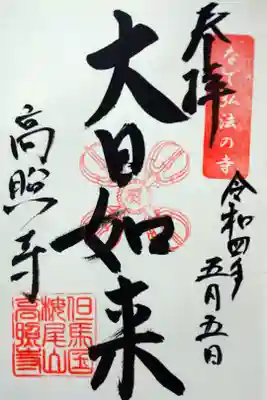 奉拝
なで弘法の寺
令和四年
五月五日
大日如来
高照寺
但馬国
椀尾山
高照寺